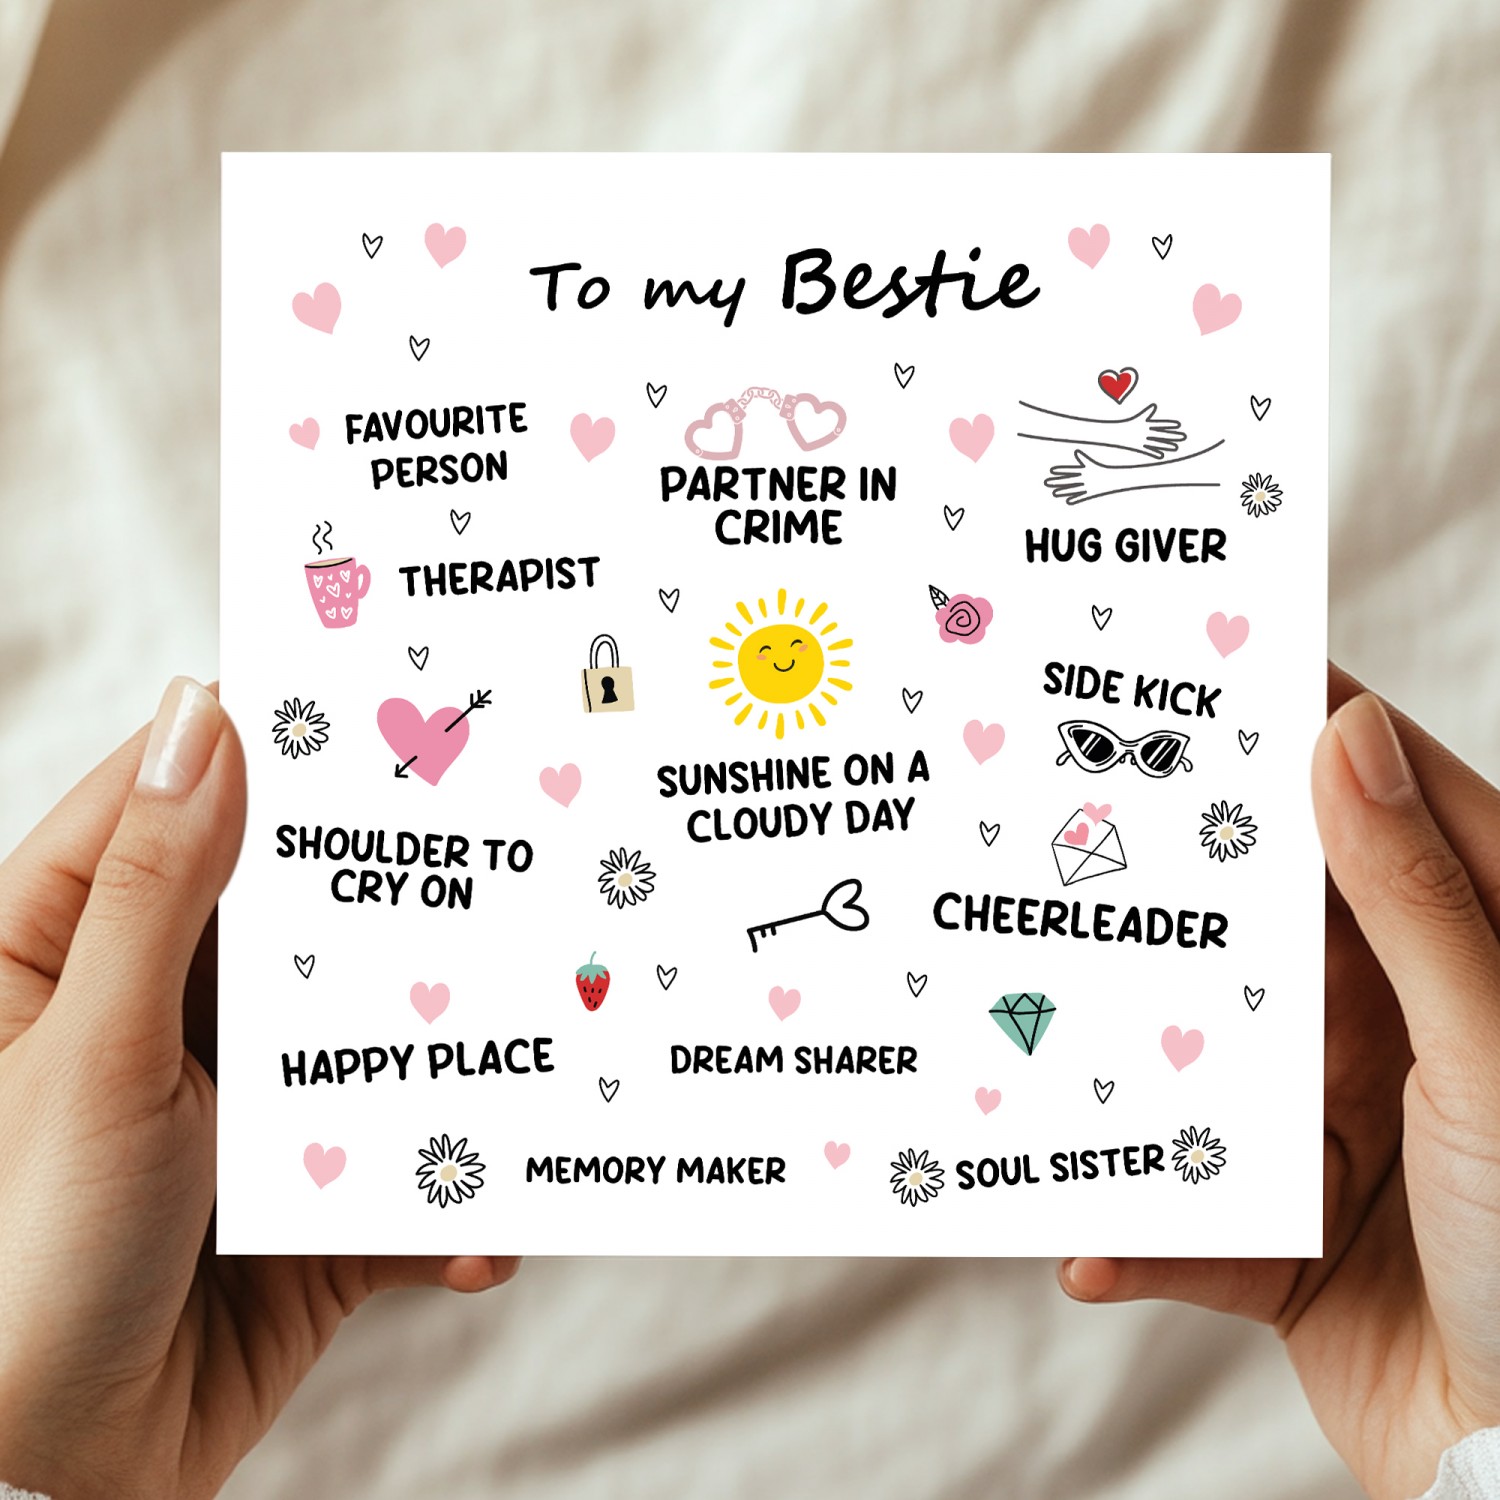 To my Bestie
FAVOURITE
PERSON
PARTNER IN
CRIME
HUG GIVER
THERAPIST
SIDE KICK
SUNSHINE ON A
CLOUDY DAY
SHOULDER TO
CRY ON
CHEERLEADER
HAPPY PLACE
DREAM SHARER
MEMORY MAKER
SOUL SISTER